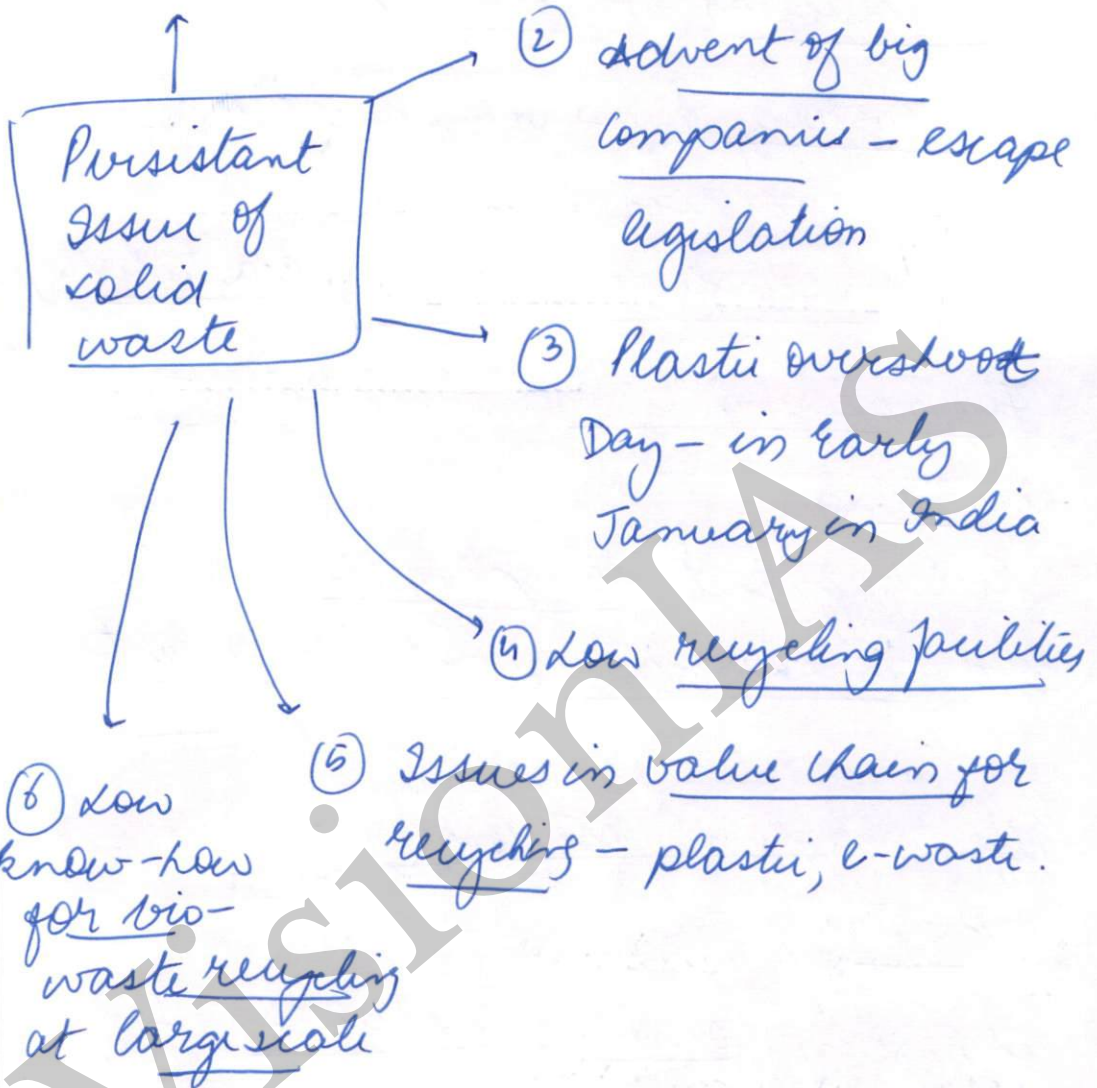 Persistant
Issue of
solid
waste
② Advent of big
companies - escape
legislation
③ Plastic overshoot
Day - in Early
January in India
④ Low recycling facilities
⑤ Issues in value chain for
recycling - plastic, e-waste.
⑥ Low
know-how
for bio-
waste recycling
at large scale
VisionIAS